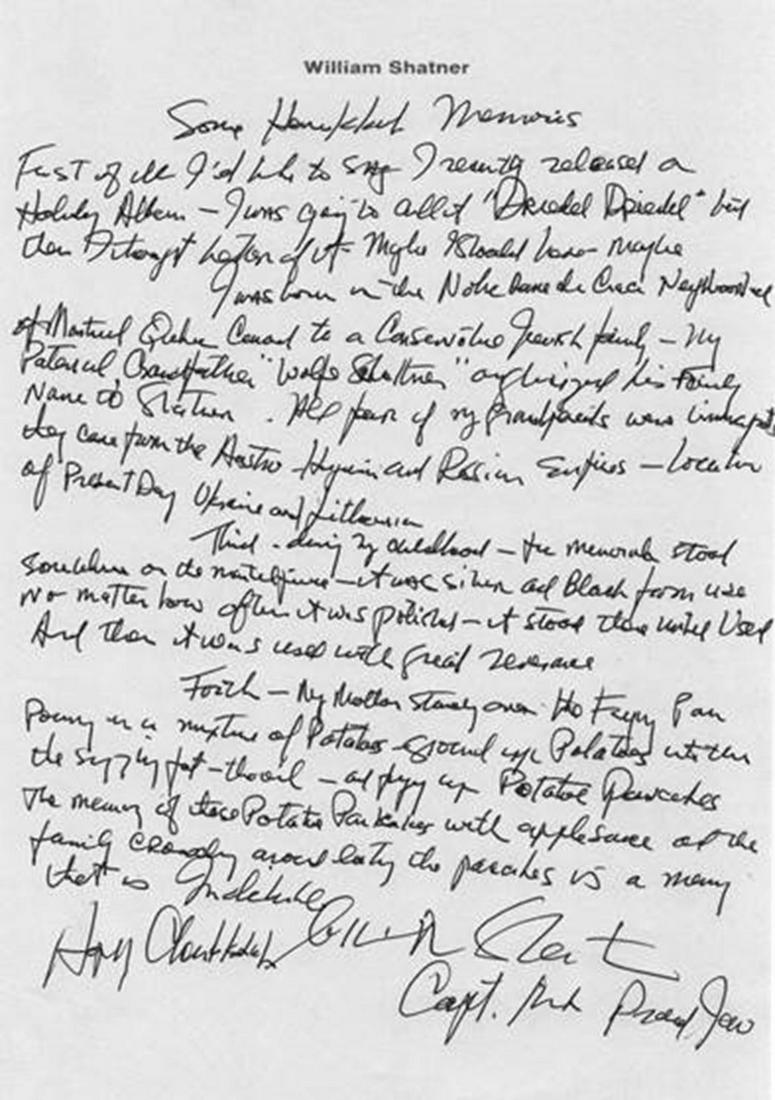 William Shatner
Some Hanukkah Memories
First of all I'd like to say I recently released a
Holiday Album – I was going to call it "Dreidel Dreidel" but
then I thought better of it – Maybe I should have – maybe
I was born in the Notre Dame de Grace Neighborhood
of Montreal Quebec Canada to a Conservative Jewish family – My
Paternal Grandfather "Wolfe Schattner" anglicized his Family
Name to Shatner. All four of my grandparents were immigrants
they came from the Austro-Hungarian and Russian Empires – Location
of Present Day Ukraine and Lithuania
Third – during my childhood – the menorah stood
somewhere on the mantelpiece – it was silver and Black from use
No matter how often it was polished – it stood there until Used
And then it was used with great reverence
Forth – My Mother standing over the Frying Pan
Pouring in a mixture of Potatoes – ground up Potatoes into the
the sizzling fat – the oil – and frying up Potatoe Pancakes
The memory of those Potatoe Pancakes with applesauce and the
family crowding around eating the pancakes is a memory
that is Indelible
Happy Chanukkah William Shatner
Capt. Kirk Proud Jew